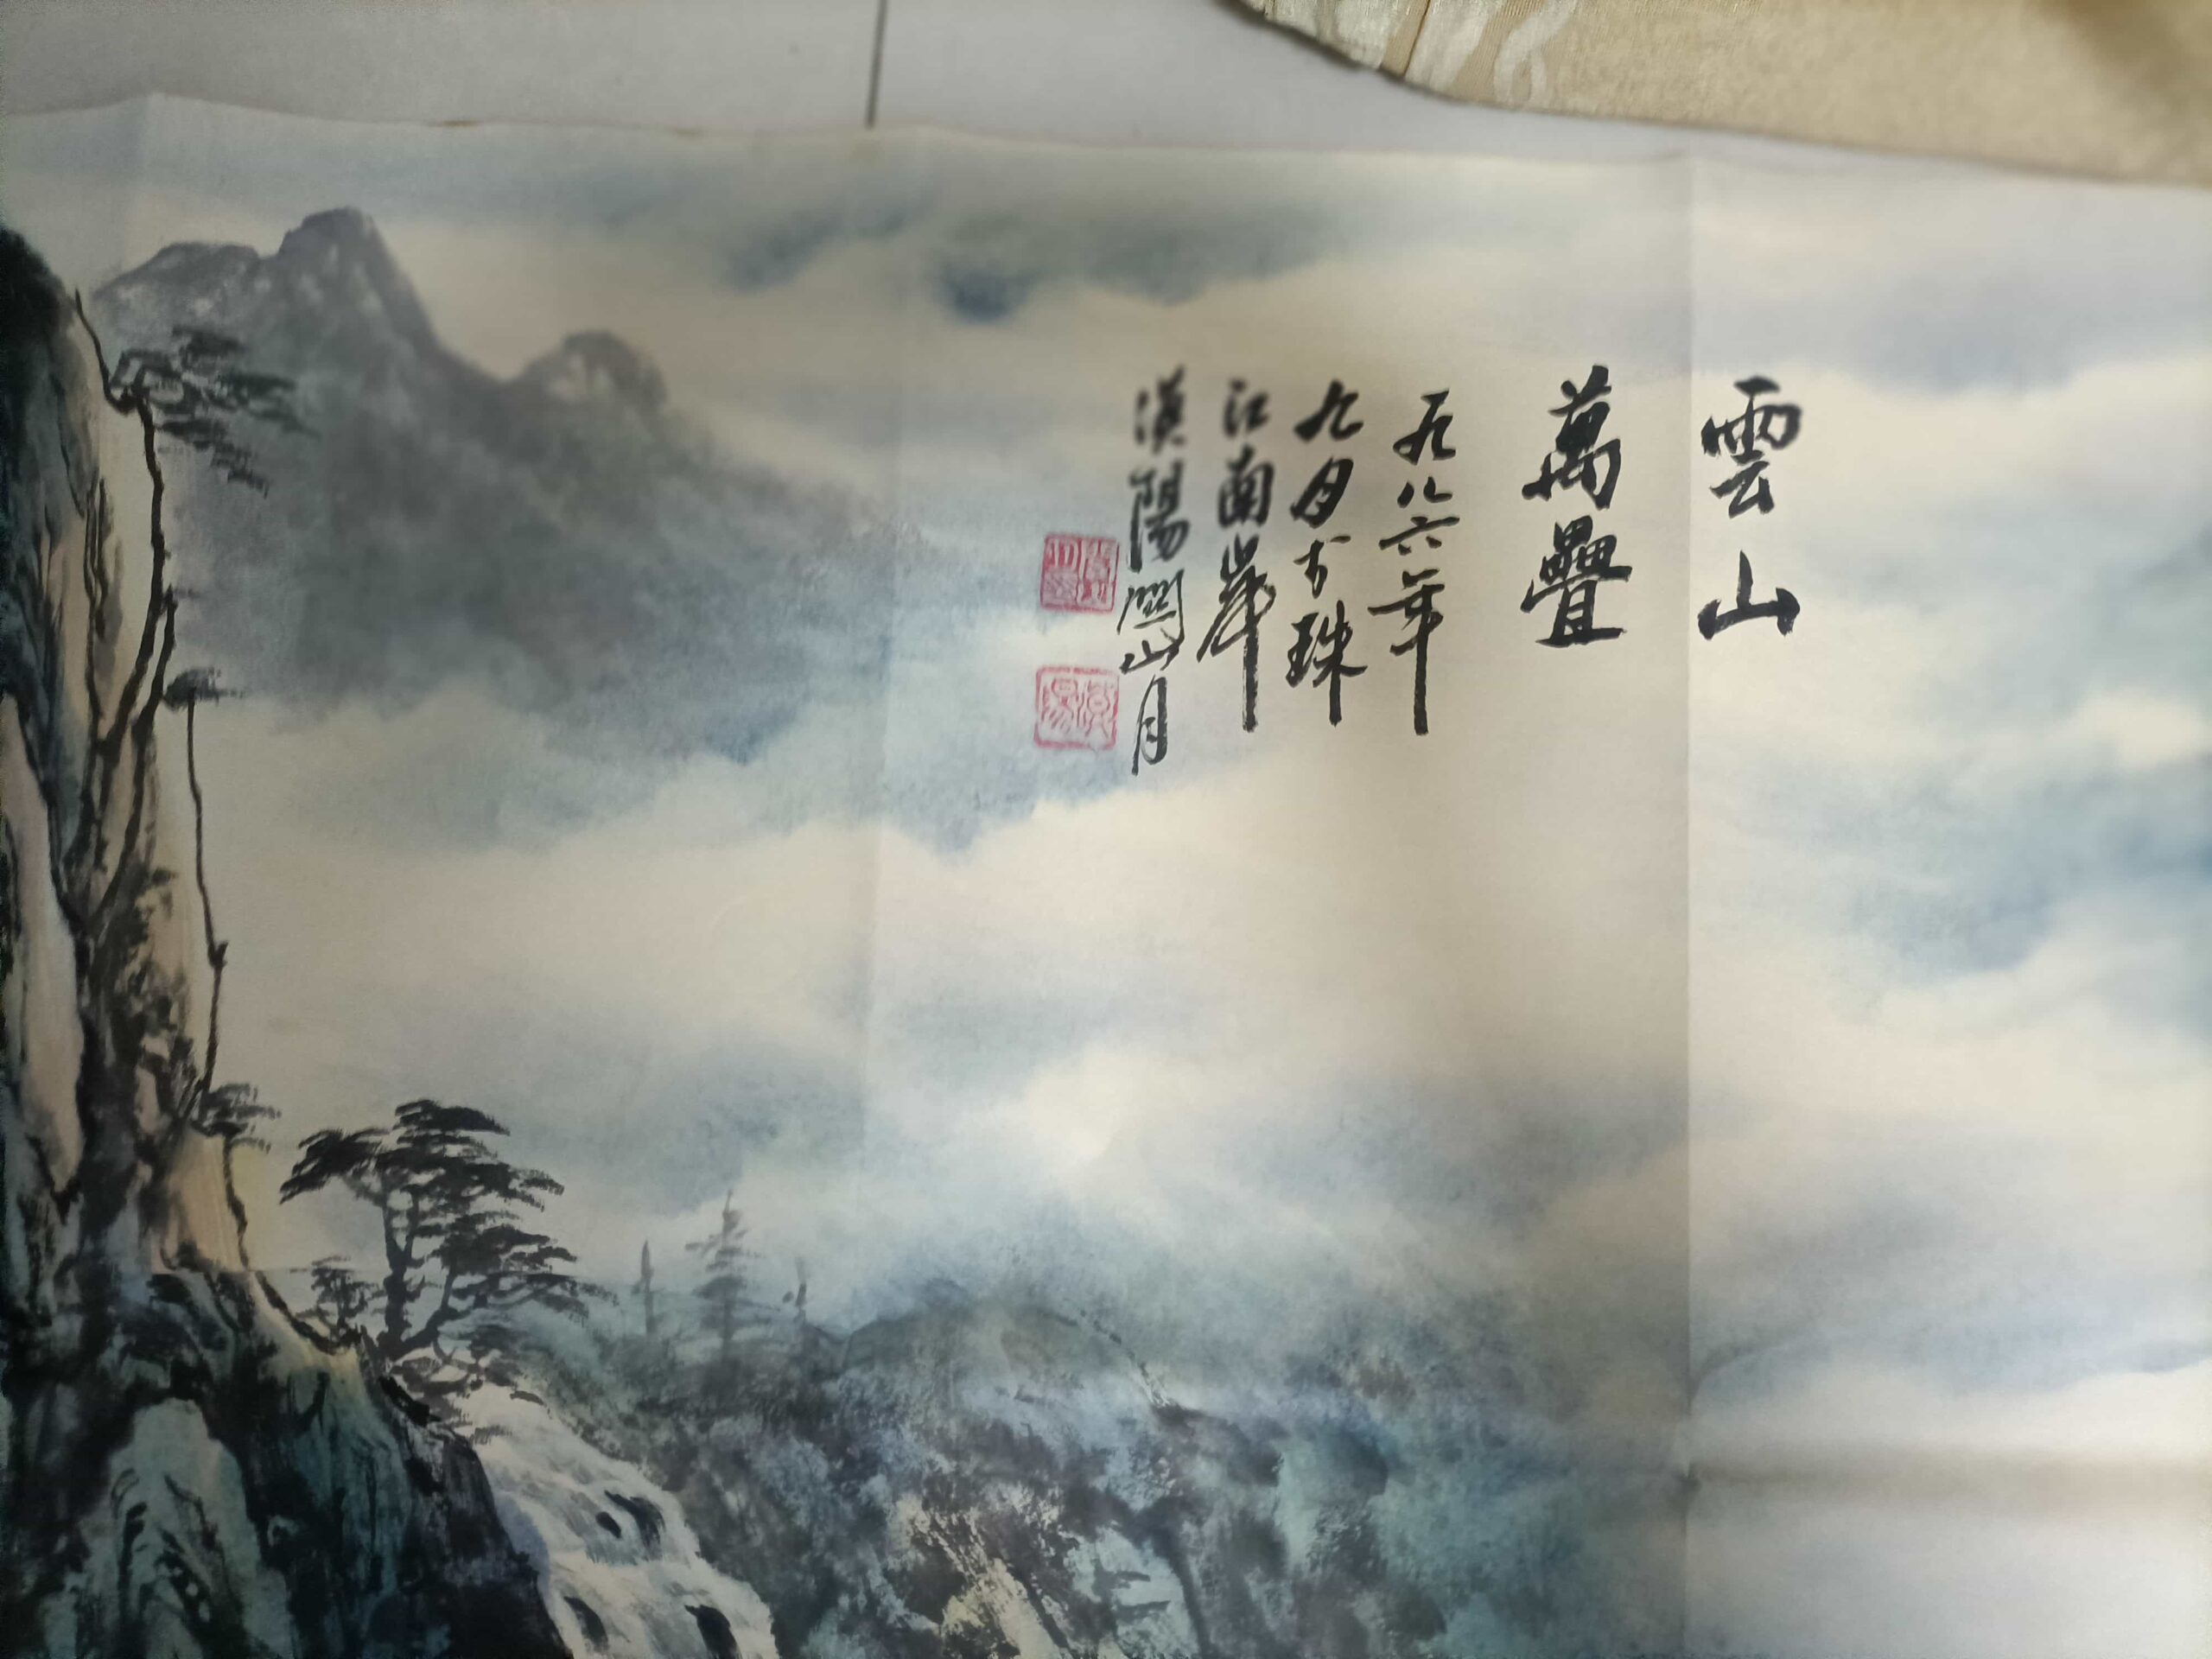 雲山
萬疊
一九八六年
九月於珠
江南岸
漠陽關山月